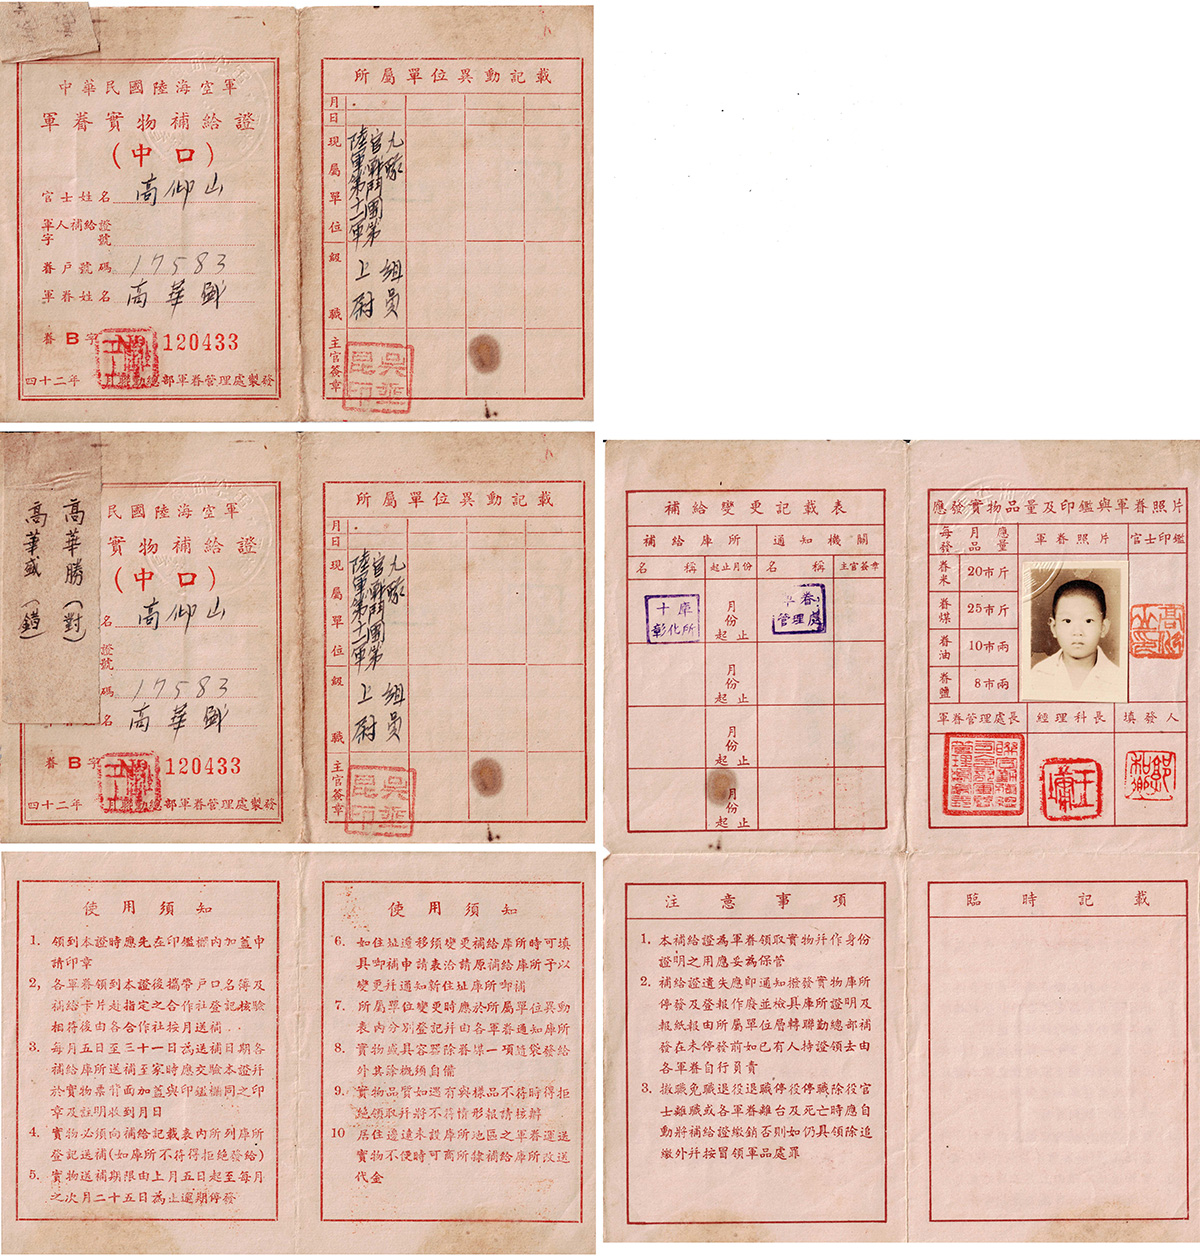 中華民國陸海空軍
軍眷實物補給證
(中口)
官士姓名 高仰山
軍人補給證
字 號
眷戶號碼 17583
軍眷姓名 高華盛
眷B字 No 120433
四十二年 月聯勤總部軍眷管理處製發
所屬單位異動記載
月
日
現屬單位
陸軍第十二軍
官戰鬥團第
九隊
級職
上尉
組員
主官簽章
吳
昆
印
高華勝(對)
高華盛(錯)
民國陸海空軍
實物補給證
(中口)
名 高仰山
證
號
碼 17583
名 高華盛
眷B字 No 120433
四十二年 月聯勤總部軍眷管理處製發
所屬單位異動記載
月
日
現屬單位
陸軍第十二軍
官戰鬥團第
九隊
級職
上尉
組員
主官簽章
吳
昆
印
補給變更記載表
補給庫所 通知機關
名稱 起止月份 名稱 主官簽章
十庫
彰化所
軍眷
管理處
月
份
起止
月
份
起止
月
份
起止
月
份
起止
應發實物品量及印鑑與軍眷照片
每月應
發品量
軍眷照片 官士印鑑
眷米 20市斤
眷煤 25市斤
眷油 10市兩
眷鹽 8市兩
軍眷管理處長 經理科長 填發人
使用須知
1. 領到本證時應先在印鑑欄內加蓋申
請印章
2, 各軍眷領到本證後攜帶戶口名簿及
補給卡片赴指定之合作社登記核驗
相符後由各合作社按月送補
3. 每月五日至三十一日為送補日期各
補給庫所送補至家時應交驗本證并
於實物票背面加蓋與印鑑欄同之印
章及註明收到月日
4. 實物必須向補給記載表內所列庫所
登記送補(如庫所不符得拒絕發給)
5. 實物送補期限由上月五日起至每月
之次月二十五日為止逾期停發
使用須知
6. 如住址遷移須變更補給庫所時可填
具卸補申請表洽請原補給庫所予以
變更并通知新住址庫所卸補
7. 所屬單位變更時應於所屬單位異動
表內分別登記并由各軍眷通知庫所
8. 實物盛具容器除眷煤一項隨袋發給
外其餘概須自備
9. 實物品質如遇有與樣品不符時得拒
絕領取并將不符情形報請核辦
10 居住邊遠未設庫所地區之軍眷運送
實物不便時可商所隸補給庫所改送
代金
注意事項
1. 本補給證為軍眷領取實物并作身份
證明之用應妥為保管
2. 補給證遺失應即通知撥發實物庫所
停發及登報作廢並檢具庫所證明及
報紙報由所屬單位層轉聯勤總部補
發在未停發前如已有人持證領去由
各軍眷自行負責
3. 撤職免職退役退職停役停職除役官
士離職或各軍眷離台及死亡時應自
動將補給證繳銷否則如仍具領除追
繳外并按冒領軍品處罪
臨時記載